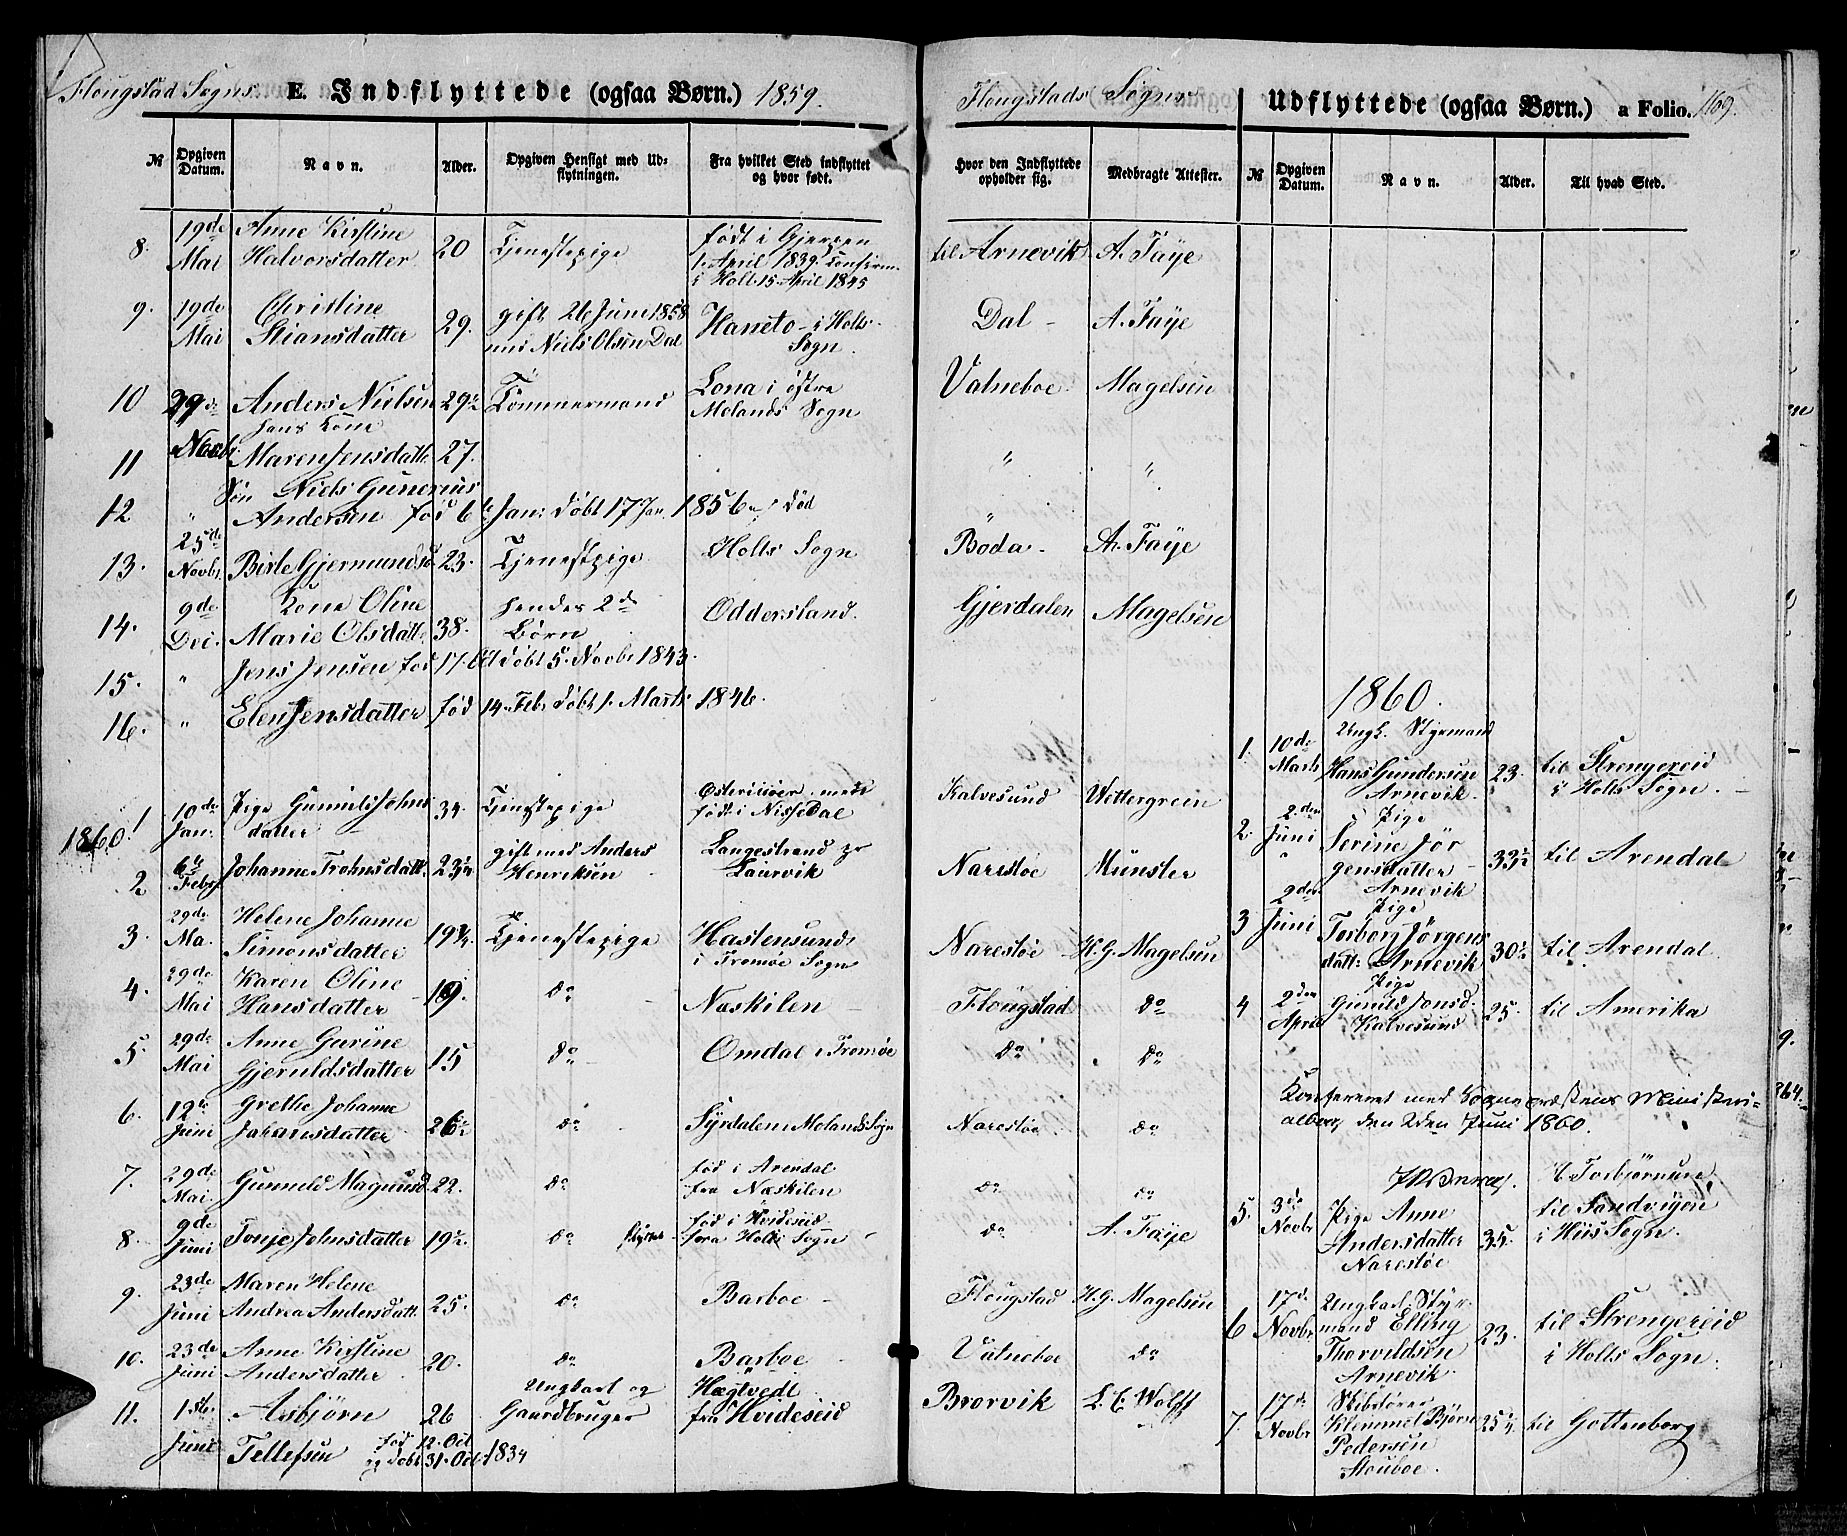 Flougstad Sogns E. Indflyttede (ogsaa Børn.) 1859.
№ Opgiven Datum. Navn. Alder. Opgiven Hensigt med Udflytningen. Fra hvilket Sted indflyttet og hvor født.
8. 19de Mai Anne Kirstine Halvorsdatter 20 Tjenestepige født i Gjerpen 1. April 1839. Confirm. i Holt 15 April 1845 til Arnevik A. Faÿe
9. 19de Mai Christine Stiansdatter 29. gift 26 Juni 1858 med Niels Olsen Dal Haneto i Holts Sogn. Dal A. Faÿe
10 29de Novbr Anders Nielsen 29½ Tømmermand Lona i østre Molands Sogn Valneboe Magelsen
hans Kone
11 Maren Jensdatte 27. " "
Søn Niels Gunerius
12 " Andersen fød 6te Jan: døbt 17 Jan. 1856 død
13. 25de Novbr. Birte Gjermundsd 23. Tjenestepige Holts Sogn Boda A. Faÿe
14. 9de Dec. Kone Oline Marie Olsdatte 38. hendes 2de Børn Oddersland. Gjerdalen Magelsen
15. " Jens Jensen fød 17. Oct døbt 5. Novbr 1843.
16. " Elen Jensdatter fød 14. Febr døbt 1. Marts 1846.
1860. 1 10de Jan: Pige Gunild Johnsdatter 34. Tjenestepige Østeriisøer, med født i Nissedal Kalvesund Wettergrein
2 6te Febr Johanne Trohnsdatt. 23¾ gift med Anders Henriksen Langestrand Laurvik Narestøe Münster
3. 29de Ma. Helene Johanne Simonsdatter 19¾ Tjenestepige Hastensund i Tromøe Sogn Narestøe H. G. Magelsen
4. 29de Mai Karen Oline Hansdatter 19. do Næskilen Flougstad do
5. 29de Mai Anne Gurine Gjeruldsdatter 15 do Omdal i Tromøe do do
6. 12te Juni Grethe Johanne Johansdatter 26½ do Syrdalen Molands Sogn Narestøe. do
7. 29de Mai. Gunneld Magnusd. 22. do fød i Arendal fra Næskilen do do
8. 9de Juni Tonje Johnsdatter 19½ do flyttet fød i Hvideseid fra Holts Sogn do A. Faÿe
9. 23de Juni Maren Helene Andrea Andersdatt. 25. do Barboe Flougstad H. G. Magelsen
10. 23de Juni Anne Kirstine Andersdatter 20. do Barboe Valneboe do
11. 1ste Juni Asbjørn Tellefsen 26 Ungkarl og Gaardbruger Hægtvedt fra Hvideseid Brorvik L. C. Wolff
fød 12. Oct og døbt 31. Oct. 1834
Flougstads Sogn Udflyttede (ogsaa Børn.) a Folio. 169.
Hvor den Indflyttede opholder sig. Medbragte Attester. № Opgiven Datum. Navn. Alder. Til hvad Sted.
1860.
1. 10de Marts Ungk. Styrmand Hans Gundersen Arnevik. 23. til Strengereid i Holts Sogn.
2. 2den Juni Pige Serine Jørgensdatter Arnevik 33½ til Arendal
3 2den Juni Pige Torborg Jørgensdatt: Arnevik 30½ til Arendal
4 2den April Pige Gunild Jonsd. Kalvesund 25. til Amerika
Konfereret med Sognepræstens Ministerialbog den 2den Juni 1860.
5. 3de Novbr Pige Anne Andersdatter Narestøe 35. til Sandvigen i Hiis Sogn.
6 17de Novbr Ungkarl Styrmand Elling Thorvildsen Arnevik. 23. til Strengereid i Holts Sogn.
7. 17de Novbr Klemmet Bjørn Pedersen 25¾ til Gottenborg